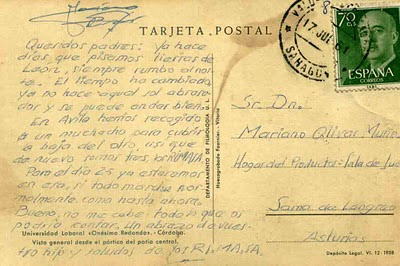 TARJETA POSTAL
Queridos padres: ya hace
días que pisamos tierras de
León, siempre rumbo al nor-
te. El tiempo ha cambiado,
ya no hace aquel sol abrasa-
dor y se puede andar bien.
En Avila hemos recogido
a un muchacho para cubrir
la baja del otro, asi que
de nuevo somos tres,
Para el día 25 ya estaremos
en esa, si todo marcha nor-
malmente como hasta ahora.
Bueno, no me cabe todo lo que os
podría contar. Un abrazo de vues-
tro hijo y saludos de
Universidad Laboral «Onésimo Redondo» - Córdoba
Vista general desde el pórtico del patio central.
DEPARTAMENTO DE FILMOLOGIA U. L.
Huecograbado Fournier.- Vitoria
17 JUL
SAHAGUN
70 CTS
ESPAÑA
CORREOS
Sr. Dn.
Mariano Olivar
Hogar del Productor - Sala de
Sama de Langreo
Asturias
Depósito Legal. VI. 12 - 1958